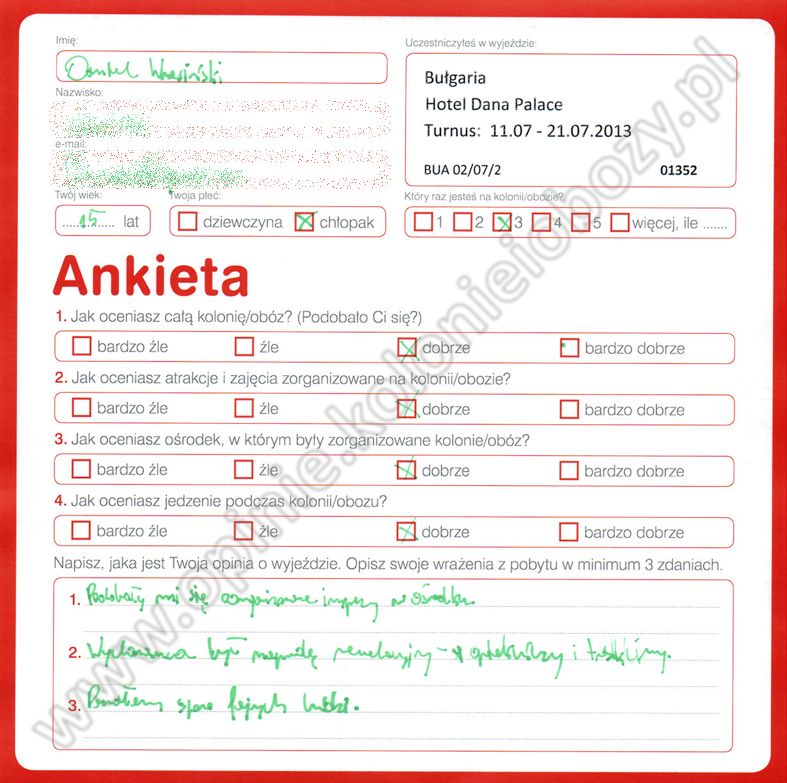 Imię:
Uczestniczyłeś w wyjeździe:
Bułgaria
Nazwisko:
Hotel Dana Palace
Turnus: 11.07 - 21.07.2013
e-mail:
BUA 02/07/2 01352
Twój wiek: Twoja płeć: Który raz jesteś na kolonii/obozie?
15 lat dziewczyna chłopak 1 2 3 4 5 więcej, ile .......
Ankieta
1. Jak oceniasz całą kolonię/obóz? (Podobało Ci się?)
bardzo źle źle dobrze bardzo dobrze
2. Jak oceniasz atrakcje i zajęcia zorganizowane na kolonii/obozie?
bardzo źle źle dobrze bardzo dobrze
3. Jak oceniasz ośrodek, w którym były zorganizowane kolonie/obóz?
bardzo źle źle dobrze bardzo dobrze
4. Jak oceniasz jedzenie podczas kolonii/obozu?
bardzo źle źle dobrze bardzo dobrze
Napisz, jaka jest Twoja opinia o wyjeździe. Opisz swoje wrażenia z pobytu w minimum 3 zdaniach.
1. Podobały mi się imprezy w ośrodku.
2. Wychowawca był naprawdę rewelacyjny - opiekuńczy i
3. Poznałem sporo fajnych ludzi.
www.opinie.kolonieiobozy.pl